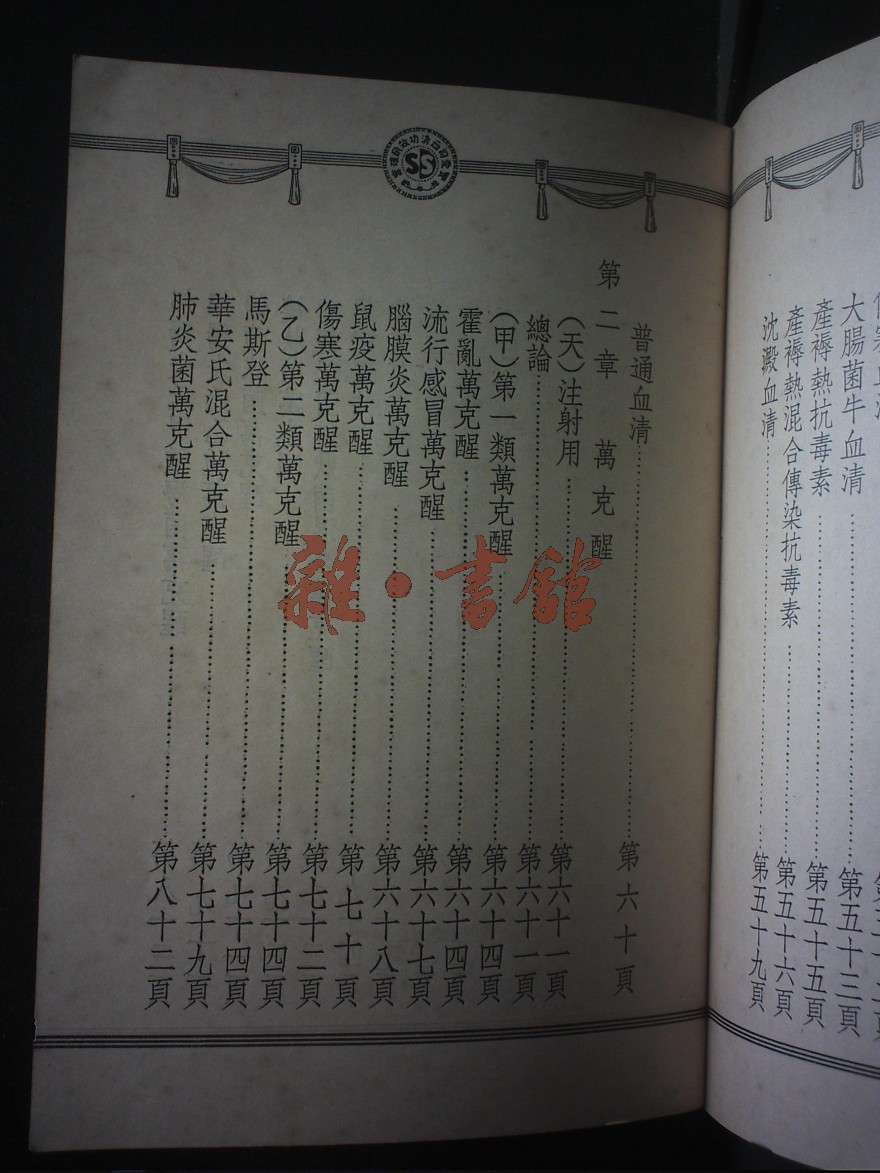 大腸菌牛血清……第五十三頁
產褥熱抗毒素……第五十五頁
產褥熱混合傳染抗毒素……第五十六頁
沈澱血清……第五十九頁
普通血清……第六十頁
第二章 萬克醒
(天)注射用……第六十一頁
總論……第六十一頁
(甲)第一類萬克醒……第六十四頁
霍亂萬克醒……第六十四頁
流行感冒萬克醒……第六十七頁
腦膜炎萬克醒……第六十八頁
鼠疫萬克醒……第七十頁
傷寒萬克醒……第七十二頁
(乙)第二類萬克醒……第七十四頁
馬斯登……第七十四頁
華安氏混合萬克醒……第七十九頁
肺炎菌萬克醒……第八十二頁
雜·書館